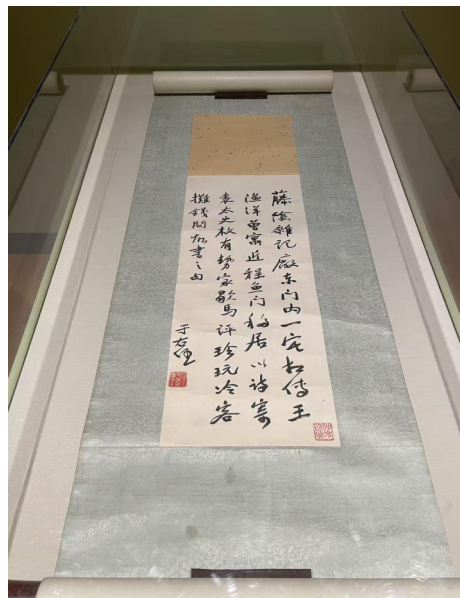 藤陰雜記廠東门内一宅相傳王
漁洋曾寓近程魚门移居以詩寄
袁太史枚有勢家歇馬評珍玩冷客
攤錢問故書之句
于右任